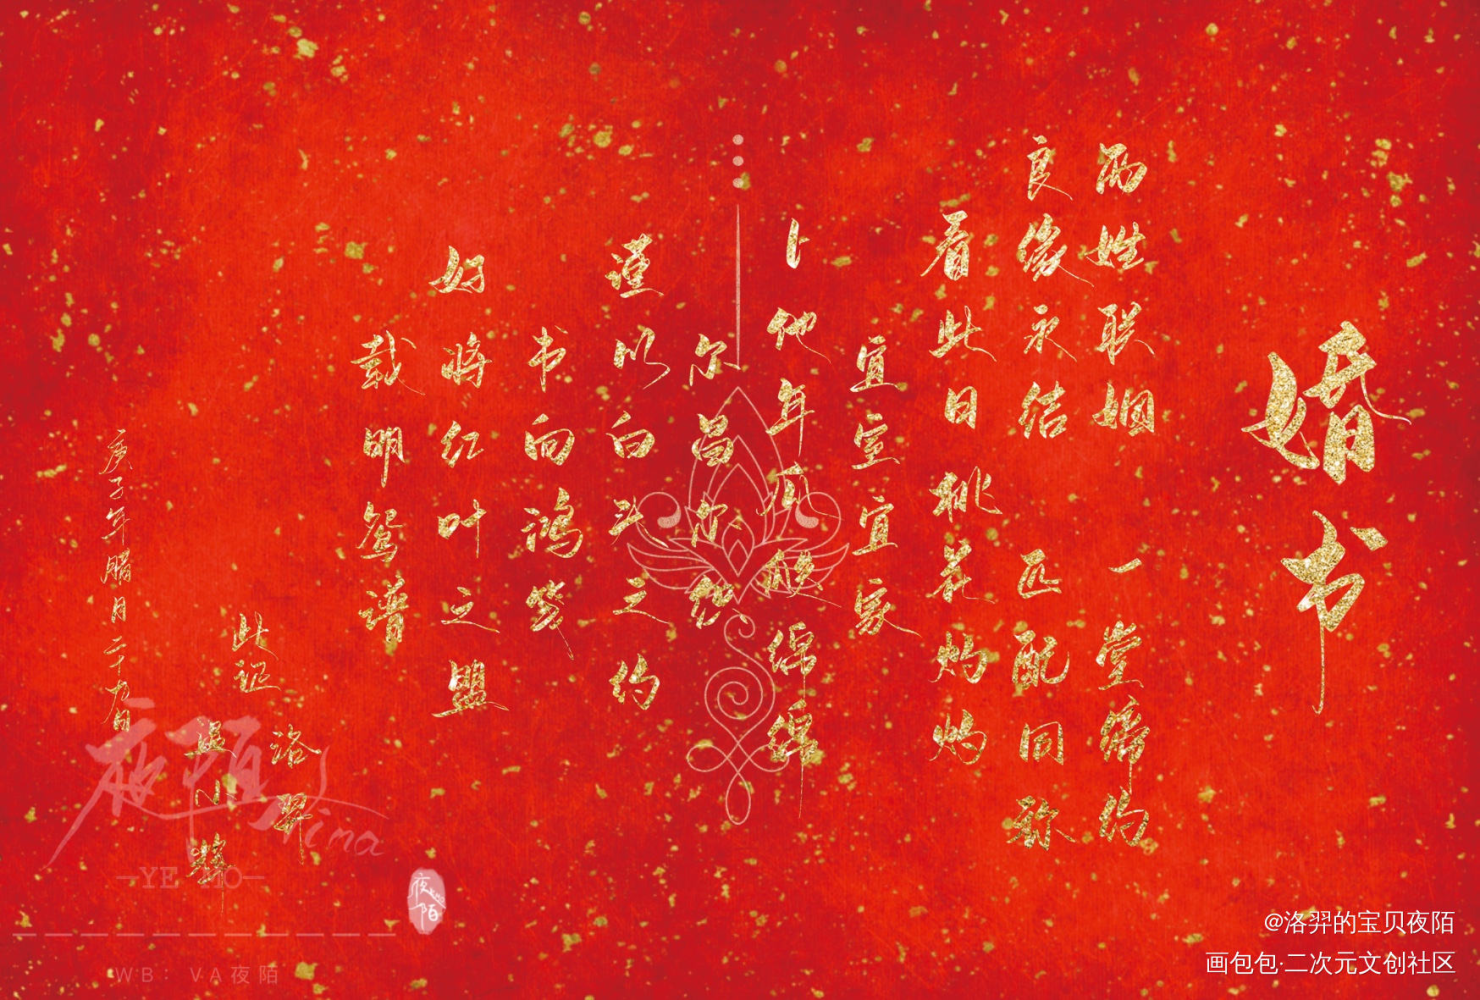 婚书
两姓联姻 一堂缔约
良缘永结 匹配同称
看此日桃花灼灼
宜室宜家
卜他年瓜瓞绵绵
尔昌尔炽
谨以白头之约
书向鸿笺
好将红叶之盟
载明鸳谱
此证
洛羿
小
庚子年腊月二十九
夜陌
YE MO
WB: VA夜陌
夜陌
@洛羿的宝贝夜陌
画包包·二次元文创社区